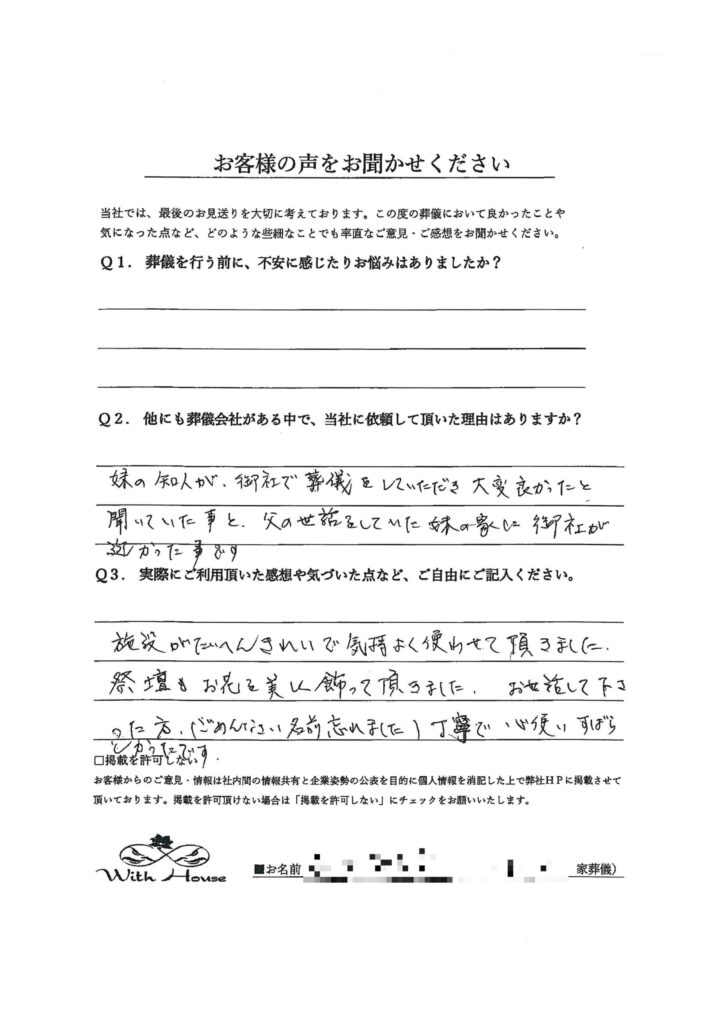 お客様の声をお聞かせください
当社では、最後のお見送りを大切に考えております。この度の葬儀において良かったことや
気になった点など、どのような些細なことでも率直なご意見・ご感想をお聞かせください。
Q1． 葬儀を行う前に、不安に感じたりお悩みはありましたか？
Q2． 他にも葬儀会社がある中で、当社に依頼して頂いた理由はありますか？
妹の知人が、御社で葬儀をしていただき大変良かったと
聞いていた事と、父の世話をしていた妹の家に御社が
近かった事です
Q3． 実際にご利用頂いた感想や気づいた点など、ご自由にご記入ください。
施設がたいへんきれいで気持よく使わせて頂きました。
祭壇もお花を美しく飾って頂きました。 お世話して下さ
った方、(ごめんなさい名前忘れました)丁寧で心使いすばら
しかったです。
□掲載を許可しない
お客様からのご意見・情報は社内間の情報共有と企業姿勢の公表を目的に個人情報を消記した上で弊社HPに掲載させて
頂いております。掲載を許可頂けない場合は「掲載を許可しない」にチェックをお願いいたします。
With House
■お名前 家葬儀）